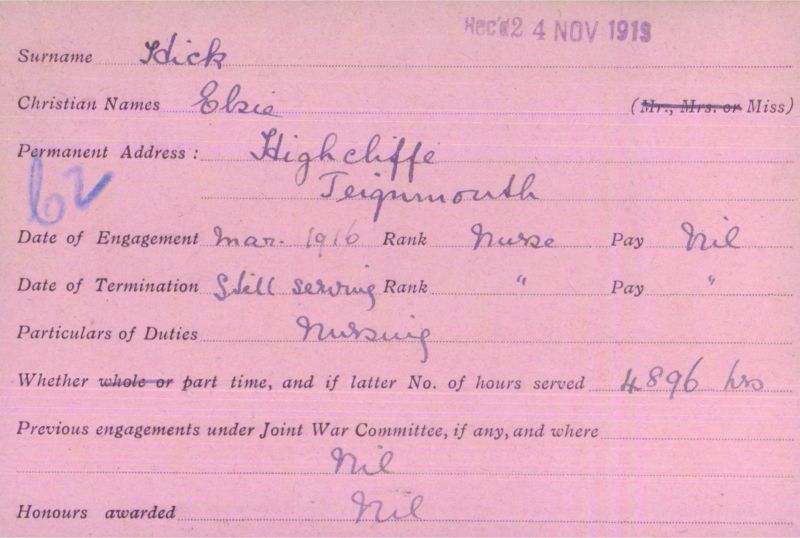 Rec'd 24 NOV 1919
Surname Hick
Christian Names Elsie (Mr., Mrs. or Miss)
Permanent Address: Highcliffe
Teignmouth
62
Date of Engagement Mar. 1916 Rank Nurse Pay Nil
Date of Termination Still serving Rank " Pay "
Particulars of Duties Nursing
Whether whole or part time, and if latter No. of hours served 4896 hrs
Previous engagements under Joint War Committee, if any, and where
Nil
Honours awarded Nil